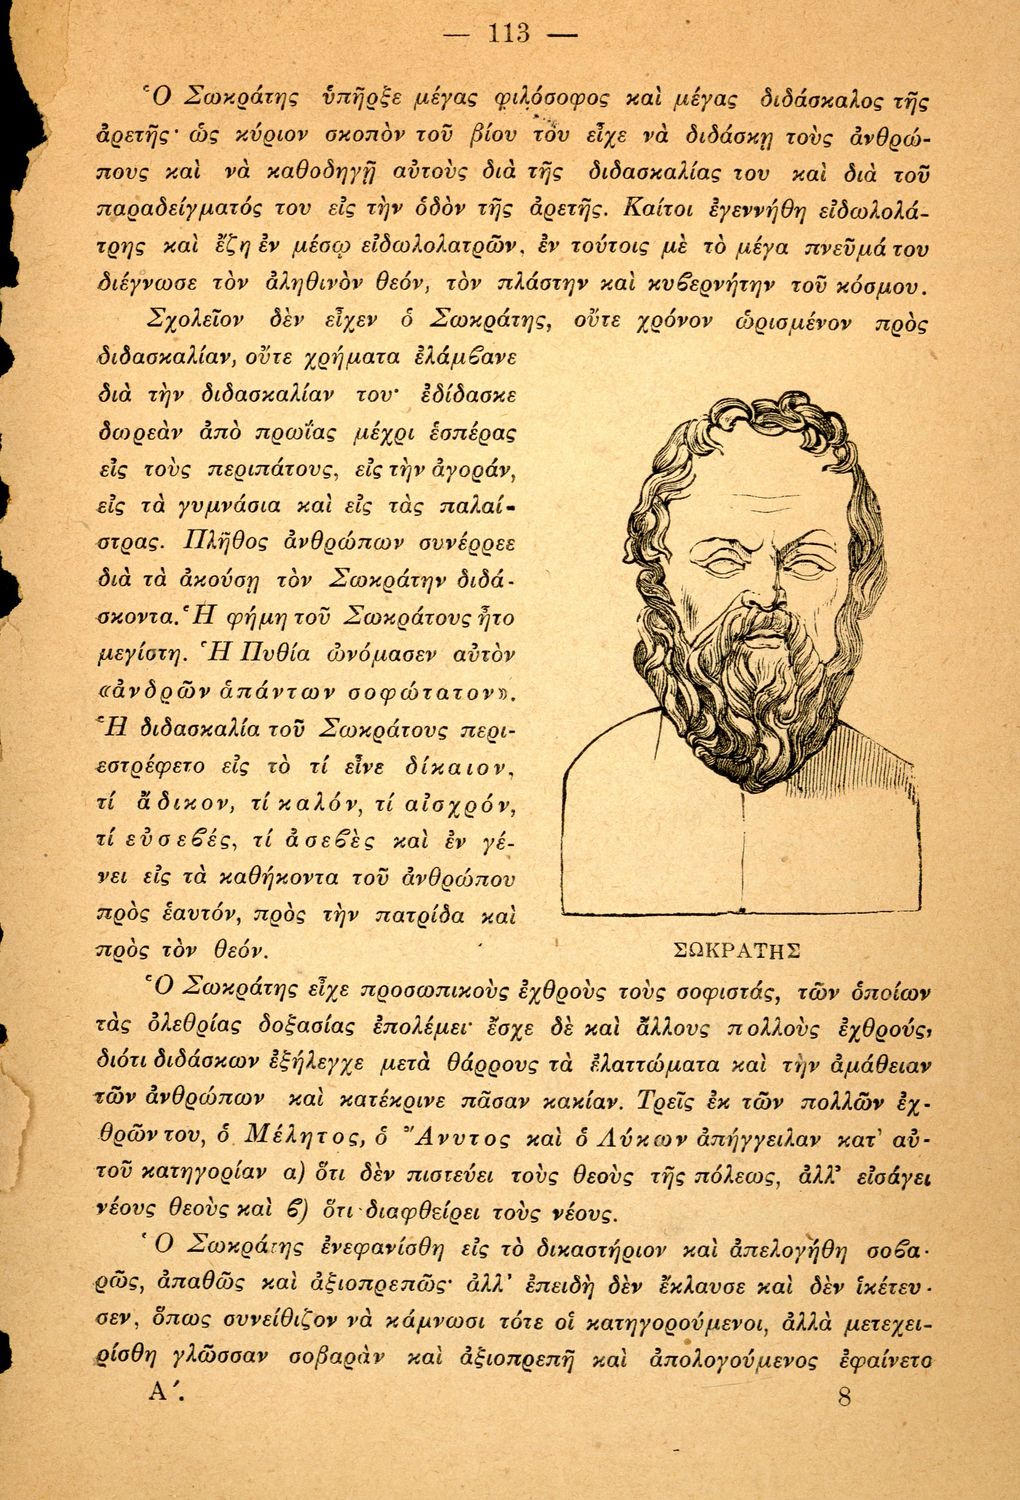 — 113 —
Ὁ Σωκράτης ὑπῆρξε μέγας φιλόσοφος καὶ μέγας διδάσκαλος τῆς
ἀρετῆς· ὡς κύριον σκοπὸν τοῦ βίου του εἶχε νὰ διδάσκῃ τοὺς ἀνθρώ-
πους καὶ νὰ καθοδηγῇ αὐτοὺς διὰ τῆς διδασκαλίας του καὶ διὰ τοῦ
παραδείγματός του εἰς τὴν ὁδὸν τῆς ἀρετῆς. Καίτοι ἐγεννήθη εἰδωλολά-
τρης καὶ ἔζη ἐν μέσῳ εἰδωλολατρῶν, ἐν τούτοις μὲ τὸ μέγα πνεῦμά του
διέγνωσε τὸν ἀληθινὸν θεόν, τὸν πλάστην καὶ κυϐερνήτην τοῦ κόσμου.
Σχολεῖον δὲν εἶχεν ὁ Σωκράτης, οὔτε χρόνον ὡρισμένον πρὸς
διδασκαλίαν, οὔτε χρήματα ἐλάμϐανε
διὰ τὴν διδασκαλίαν του· ἐδίδασκε
δωρεὰν ἀπὸ πρωΐας μέχρι ἑσπέρας
εἰς τοὺς περιπάτους, εἰς τὴν ἀγοράν,
εἰς τὰ γυμνάσια καὶ εἰς τὰς παλαί-
στρας. Πλῆθος ἀνθρώπων συνέρρεε
διὰ τὰ ἀκούσῃ τὸν Σωκράτην διδά-
σκοντα. Ἡ φήμη τοῦ Σωκράτους ἦτο
μεγίστη. Ἡ Πυθία ὠνόμασεν αὐτὸν
«ἀνδρῶν ἁπάντων σοφώτατον».
Ἡ διδασκαλία τοῦ Σωκράτους περι-
εστρέφετο εἰς τὸ τί εἶνε δίκαιον,
τί ἄδικον, τί καλόν, τί αἰσχρόν,
τί εὐσεϐές, τί ἀσεϐὲς καὶ ἐν γέ-
νει εἰς τὰ καθήκοντα τοῦ ἀνθρώπου
πρὸς ἑαυτόν, πρὸς τὴν πατρίδα καὶ
πρὸς τὸν θεόν.
ΣΩΚΡΑΤΗΣ
Ὁ Σωκράτης εἶχε προσωπικοὺς ἐχθροὺς τοὺς σοφιστάς, τῶν ὁποίων
τὰς ὀλεθρίας δοξασίας ἐπολέμει· ἔσχε δὲ καὶ ἄλλους πολλοὺς ἐχθρούς,
διότι διδάσκων ἐξήλεγχε μετὰ θάρρους τὰ ἐλαττώματα καὶ τὴν ἀμάθειαν
τῶν ἀνθρώπων καὶ κατέκρινε πᾶσαν κακίαν. Τρεῖς ἐκ τῶν πολλῶν ἐχ-
θρῶν του, ὁ Μέλητος, ὁ Ἄνυτος καὶ ὁ Λύκων ἀπήγγειλαν κατ' αὐ-
τοῦ κατηγορίαν α) ὅτι δὲν πιστεύει τοὺς θεοὺς τῆς πόλεως, ἀλλ' εἰσάγει
νέους θεοὺς καὶ ϐ) ὅτι διαφθείρει τοὺς νέους.
Ὁ Σωκράτης ἐνεφανίσθη εἰς τὸ δικαστήριον καὶ ἀπελογήθη σοϐα-
ρῶς, ἀπαθῶς καὶ ἀξιοπρεπῶς· ἀλλ' ἐπειδὴ δὲν ἔκλαυσε καὶ δὲν ἱκέτευ-
σεν, ὅπως συνείθιζον νὰ κάμνωσι τότε οἱ κατηγορούμενοι, ἀλλὰ μετεχει-
ρίσθη γλῶσσαν σοβαρὰν καὶ ἀξιοπρεπῆ καὶ ἀπολογούμενος ἐφαίνετο
Α΄. 8